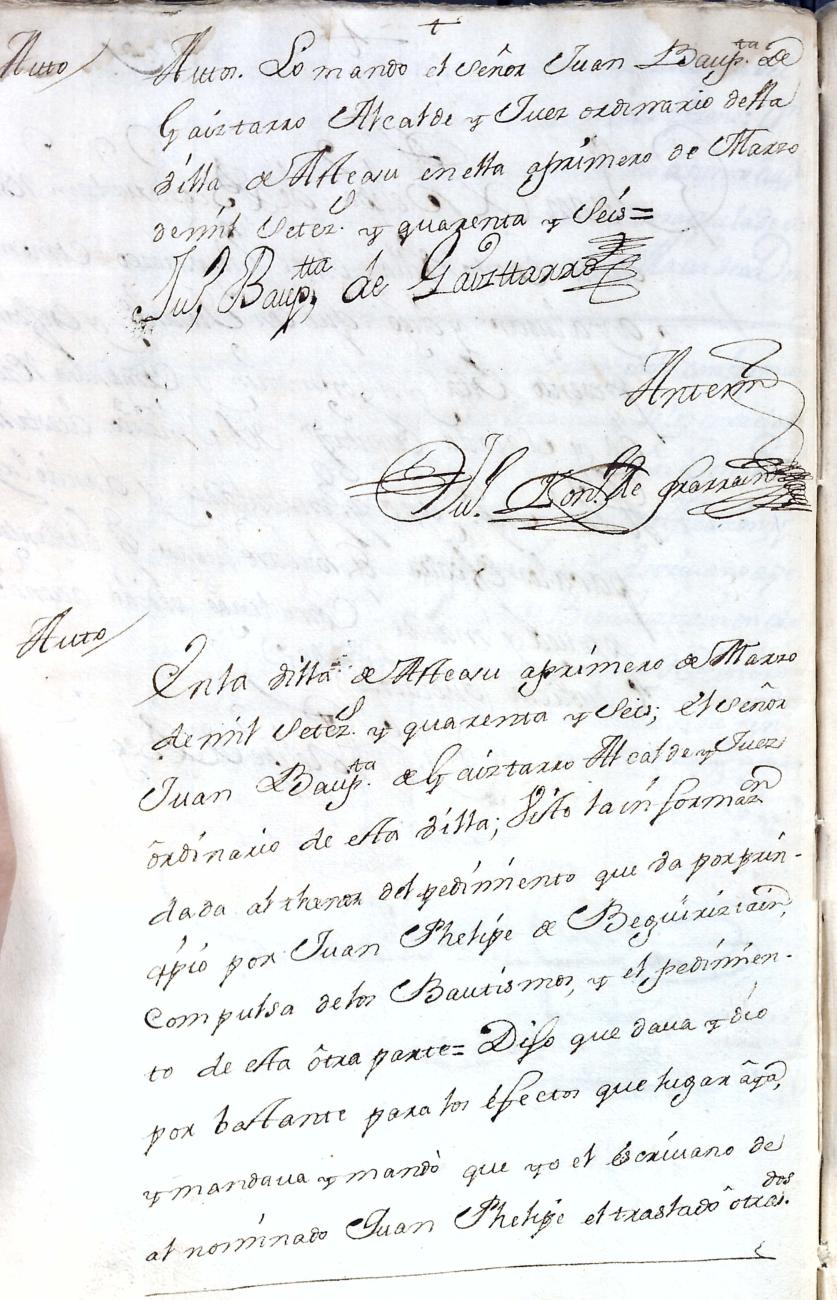 +
Auto
Autos. Lo mando el señor Juan Baup.ta de
Gaiztarro Alcalde y Juez ordinario desta
Villa de Asteasu en ella a primero de Marzo
de mil Setez.s y quarenta y Seis=
Ju.n Baup.tta de Gaizttarro
Antemi
Ju.n Fon.co de Yrarrain
Auto
En la Villa de Asteasu a primero de Marzo
de mil Setez.s y quarenta y Seis; el señor
Juan Baup.ta de Gaiztarro Alcalde y Juez
ôrdinario de esta Villa; Visto la in formaz.on
dada al thenor del pedimiento que va por prin-
cipio por Juan Phelipe de Beguiriztain,
Compulsa de los Bautismos, y el pedimien-
to de esta ôtra parte= Dijo que dava y dio
por bastante para los êfectos que lugar âya,
y mandava y mandò que yo el êscrivano de
al nominado Juan Phelipe el traslado ôtras dos.